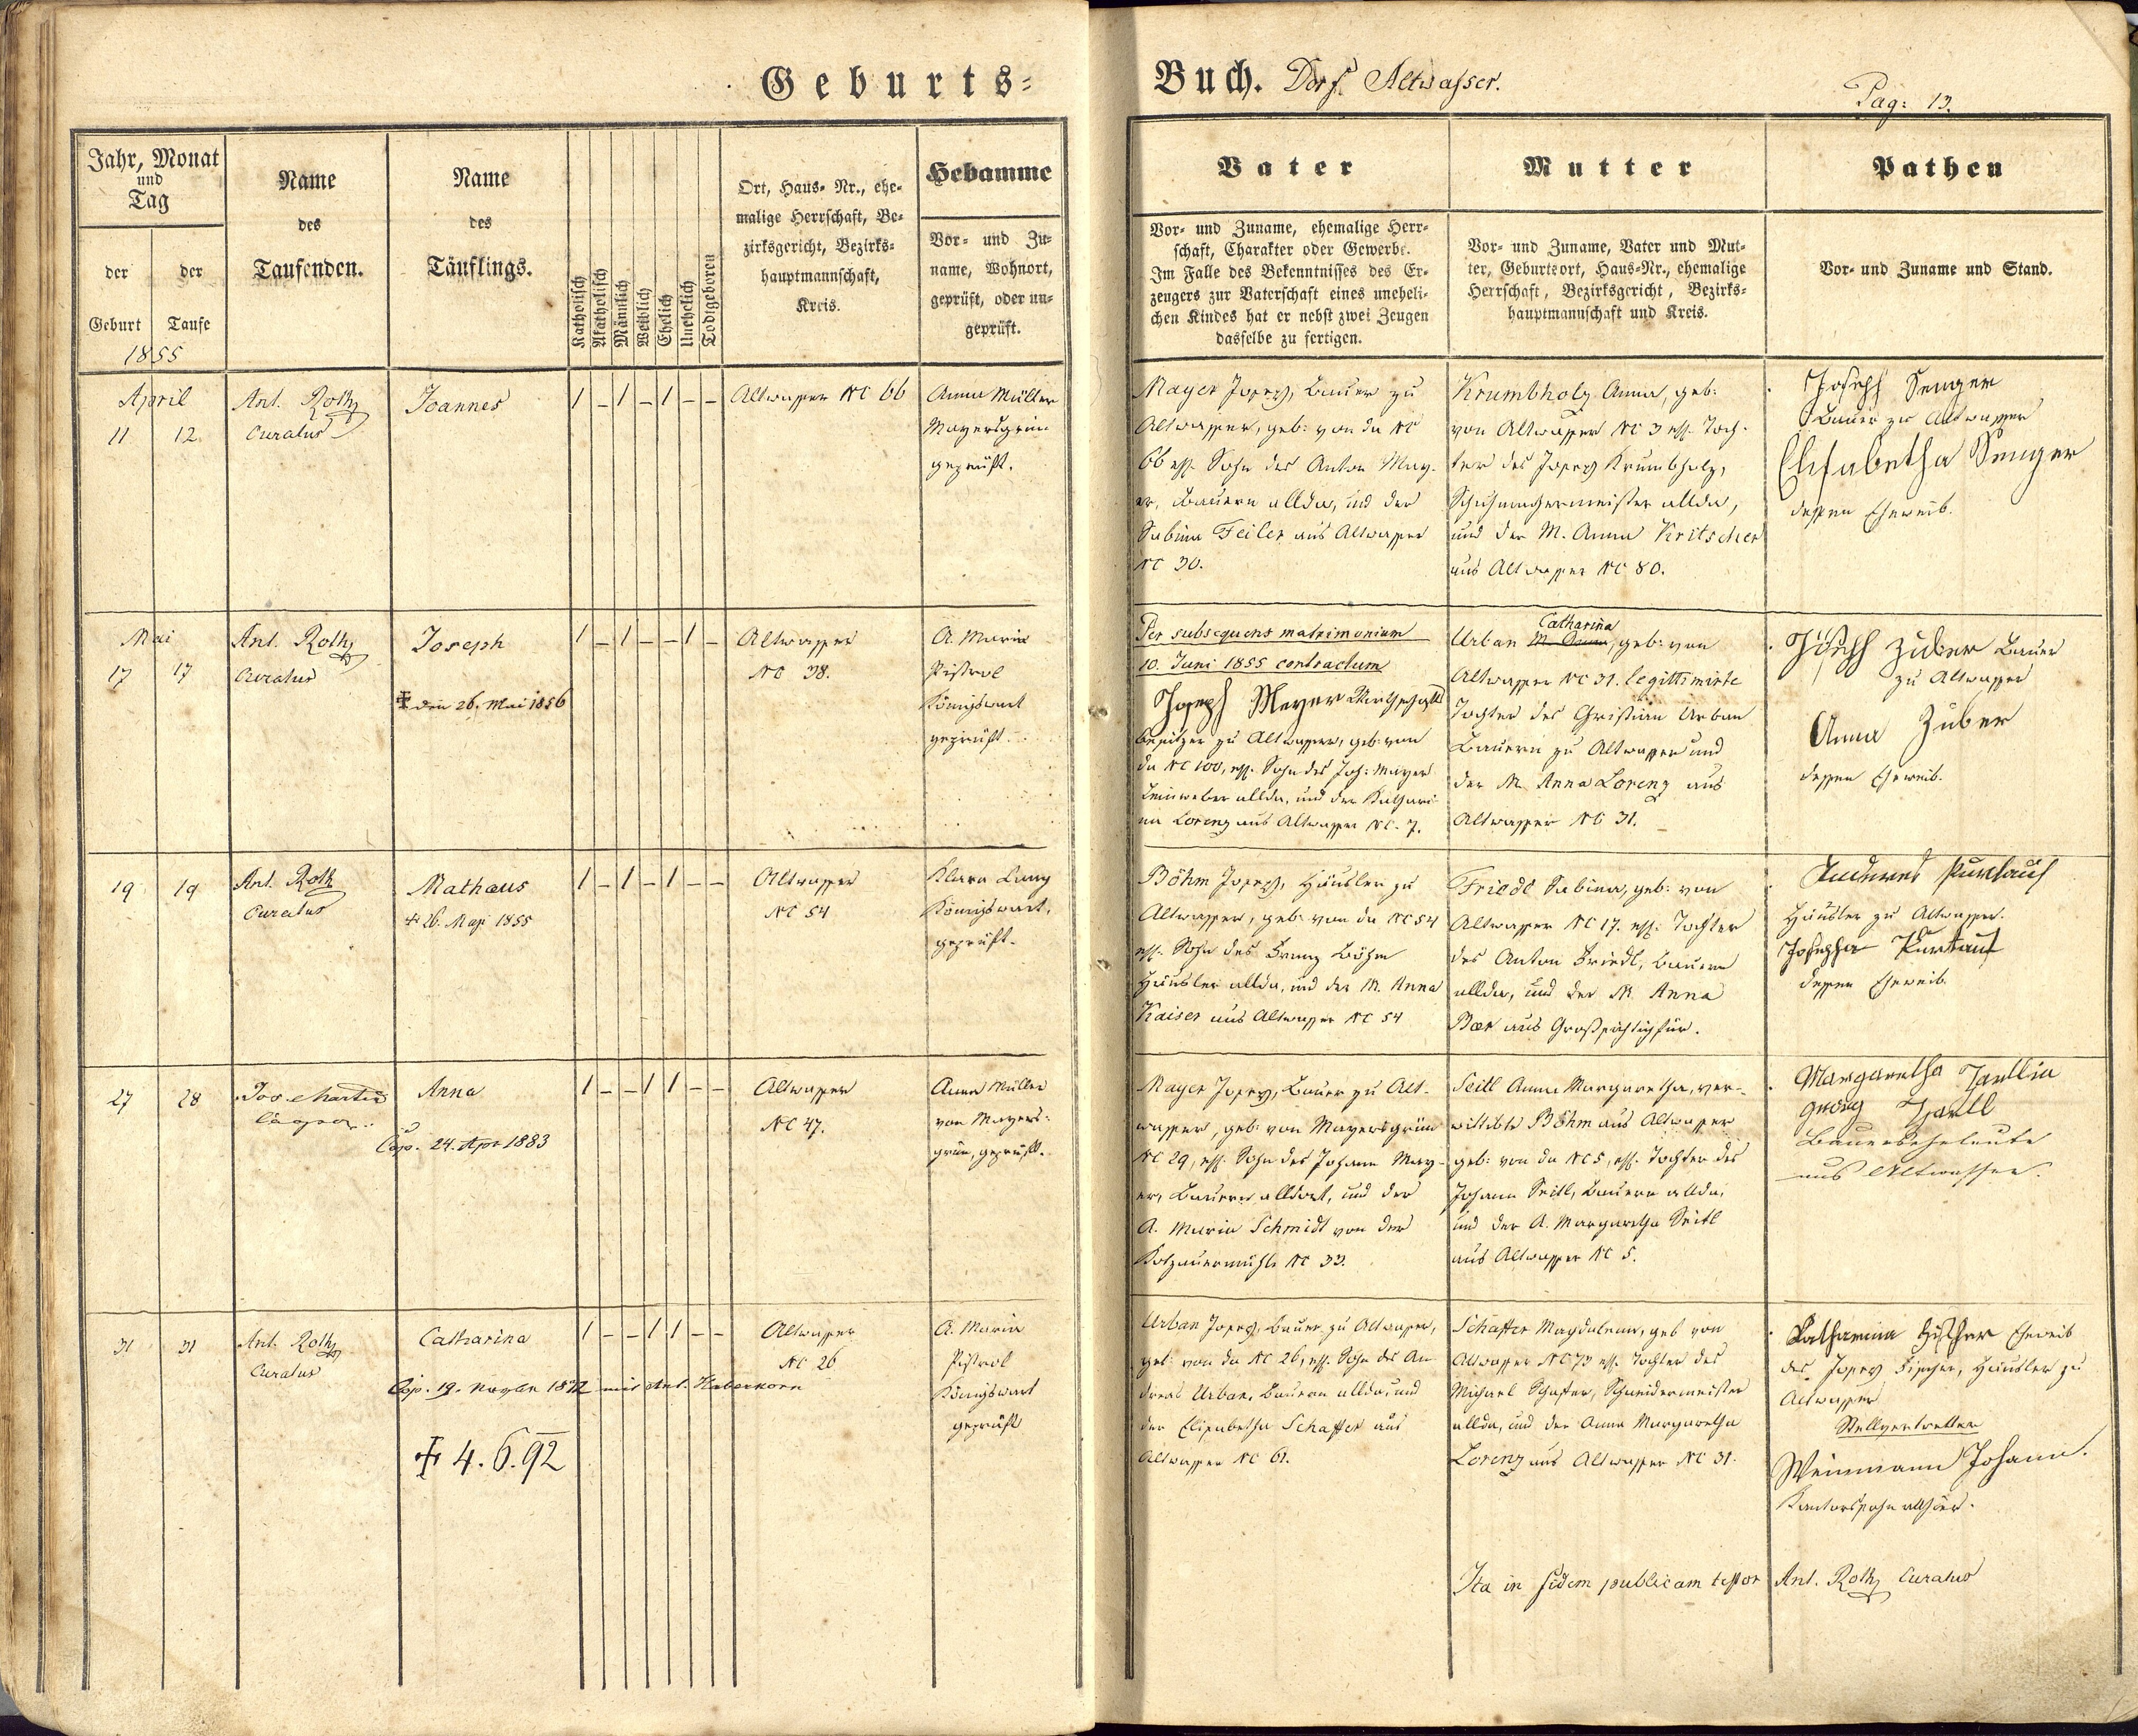 Geburts=
Buch. Dorf Altwasser.
Pag: 13.
Jahr, Monat
und
Tag
der
Geburt
der
Taufe
1855
Name
des
Taufenden.
Name
des
Täuflings.
Katholisch
Akatholisch
Männlich
Weiblich
Ehelich
Unehelich
Todtgeboren
Ort, Haus- Nr., ehe-
malige Herrschaft, Be-
zirksgericht, Bezirks-
hauptmannschaft,
Kreis.
Hebamme
Vor- und Zu-
name, Wohnort,
geprüft, oder un-
geprüft.
Vater
Vor- und Zuname, ehemalige Herr-
schaft, Charakter oder Gewerbe.
Im Falle des Bekenntnisses des Er-
zeugers zur Vaterschaft eines uneheli-
chen Kindes hat er nebst zwei Zeugen
dasselbe zu fertigen.
Mutter
Vor- und Zuname, Vater und Mut-
ter, Geburtsort, Haus-Nr., ehemalige
Herrschaft, Bezirksgericht, Bezirks-
hauptmannschaft und Kreis.
Pathen
Vor- und Zuname und Stand.
April
11 12.
Ant. Roth
Curatus
Joannes
1 – 1 – 1 – –
Altwasser NC 66
Anna Müller
Mayersgrün
geprüft.
Mayer Josef, Bauer zu
Altwasser, geb: von da NC
66 ehl. Sohn des Anton May-
er, Bauern allda, und der
Sabina Feiler aus Altwasser
NC 30.
Krumbholz Anna, geb:
von Altwasser NC 3 ehl. Toch-
ter des Josef Krumbholz,
Schuhmachermeister allda,
und der M. Anna Kritscher
aus Altwasser NC 80.
Joseph Senger
Bauer zu Altwasser
Elisabetha Senger
dessen Eheweib.
Mai
17 17
Ant. Roth
Curatus
Joseph
✠ den 26. Mai 1856
1 – 1 – – 1 –
Altwasser
NC 38.
A. Maria
Pistrol
Königswart
geprüft.
Per subsequens matrimonium
10. Juni 1855 contractum
Joseph Mayer Wirthschafts
besitzer zu Altwasser, geb: von
da NC 100, ehl. Sohn des Joh: Mayer
Leinweber allda, und der Kathari-
na Lorenz aus Altwasser NC. 7.
Catharina
Urban M. Anna, geb: von
Altwasser NC 31. legittimirte
Tochter des Christian Urban
Bauern zu Altwasser und
der M. Anna Lorenz aus
Altwasser NC 31.
Joseph Zuber Bauer
zu Altwasser
Anna Zuber
dessen Eheweib.
19 19
Ant. Roth
Curatus
Mathaus
✠ 26. May 1855
1 – 1 – 1 – –
Altwasser
NC 54
Klara Lang
Königswart,
geprüft.
Böhm Josef, Häusler zu
Altwasser, geb: von da NC 54
ehl. Sohn des Franz Böhm
Häusler allda, und der M. Anna
Kaiser aus Altwasser NC 54
Friedl Sabina, geb: von
Altwasser NC 17. ehl. Tochter
des Anton Friedl, Bauern
allda, und der M. Anna
aus
Andreas Purkauf
Häusler zu Altwasser.
Josepha Purkauf
dessen Eheweib.
27 28
Jos. Martin
Anna
Cop. 24. Apr 1883
1 – – 1 1 – –
Altwasser
NC 47.
Anna Müller
von Mayers-
grün, geprüft.
Mayer Josef, Bauer zu Alt-
wasser, geb: von Mayersgrün
NC 29, ehl. Sohn des Johann May-
er, Bauern alldort, und der
A. Maria Schmidt von der
NC 33.
Seitl Anna Margaretha, ver-
wittibte Böhm aus Altwasser
geb: von da NC 5, ehl. Tochter des
Johann Seitl, Bauern allda,
und der A. Margaretha Seitl
aus Altwasser NC 5.
Margaretha
Georg
Bauerseheleute
aus Altwasser.
31 31
Ant. Roth
Curatus
Catharina
Cop. 19. 1872 mit Ant. Haberkorn
✠ 4.6.92
1 – – 1 1 – –
Altwasser
NC 26
A. Maria
Pistrol
Königswart
geprüft
Urban Josef, Bauer zu Altwasser,
geb: von da NC 26, ehl. Sohn des An-
dreas Urban, Bauern allda, und
der Elisabetha Schaffer aus
Altwasser NC 61.
Schaffer Magdalena, geb von
Altwasser NC 73 ehl. Tochter des
Michael Schaffer, Schneidermeister
allda, und der Anna Margaretha
Lorenz aus Altwasser NC 31.
Katharina Fischer Eheweib
des Josef Fischer, Häusler zu
Altwasser
Stellvertretter
Weinmann Johann.
Kantorssohn allhier.
Ita in fidem publicam testor Ant. Roth Curatus